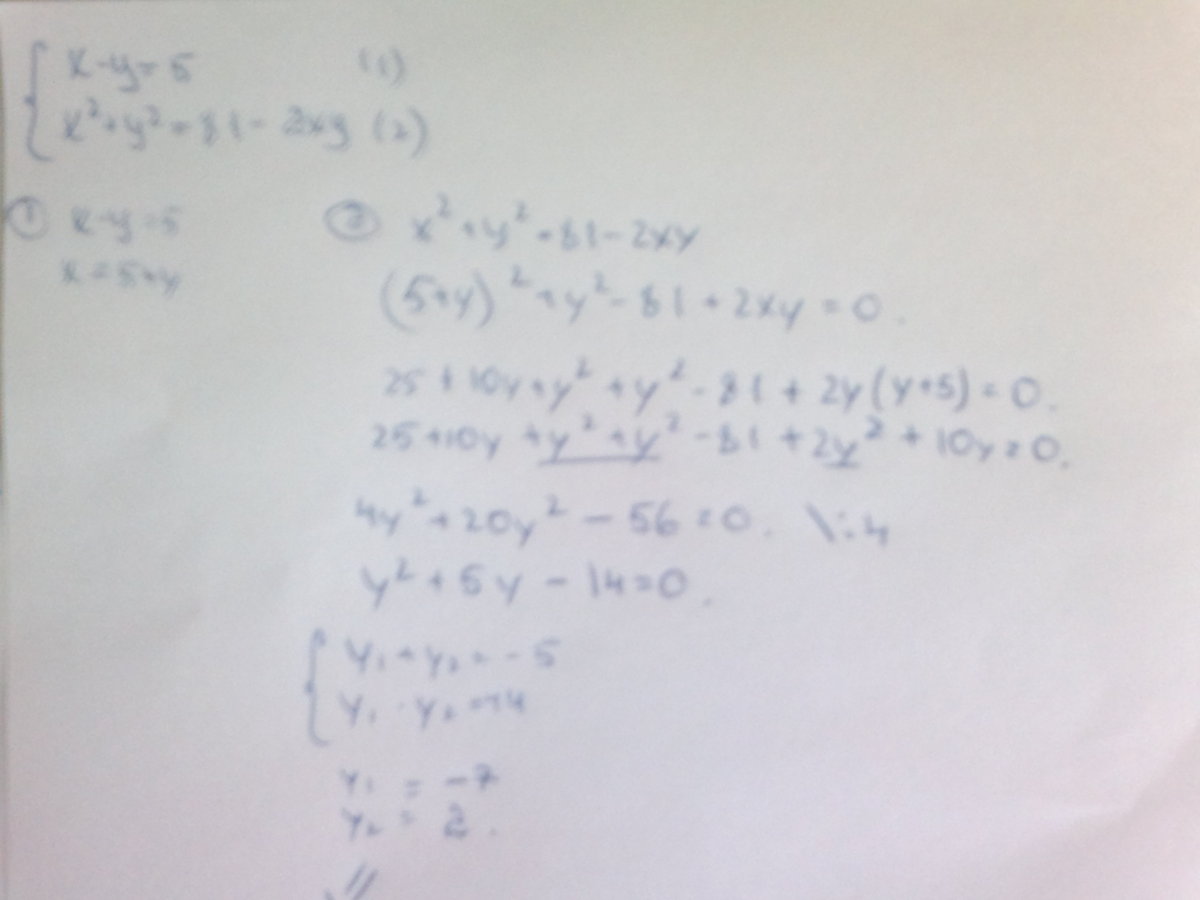 x-y=5 (1)
x²+y²=81-2xy (2)
① x-y=5
x=5+y
② x²+y²=81-2xy
(5+y)²+y²-81+2xy=0.
25+10y+y²+y²-81+2y(y+5)=0.
25+10y+y²+y²-81+2y²+10y=0.
4y²+20y²-56=0. \:4
y²+5y-14=0.
y₁+y₂=-5
y₁·y₂=-14
y₁=-7
y₂=2.
//